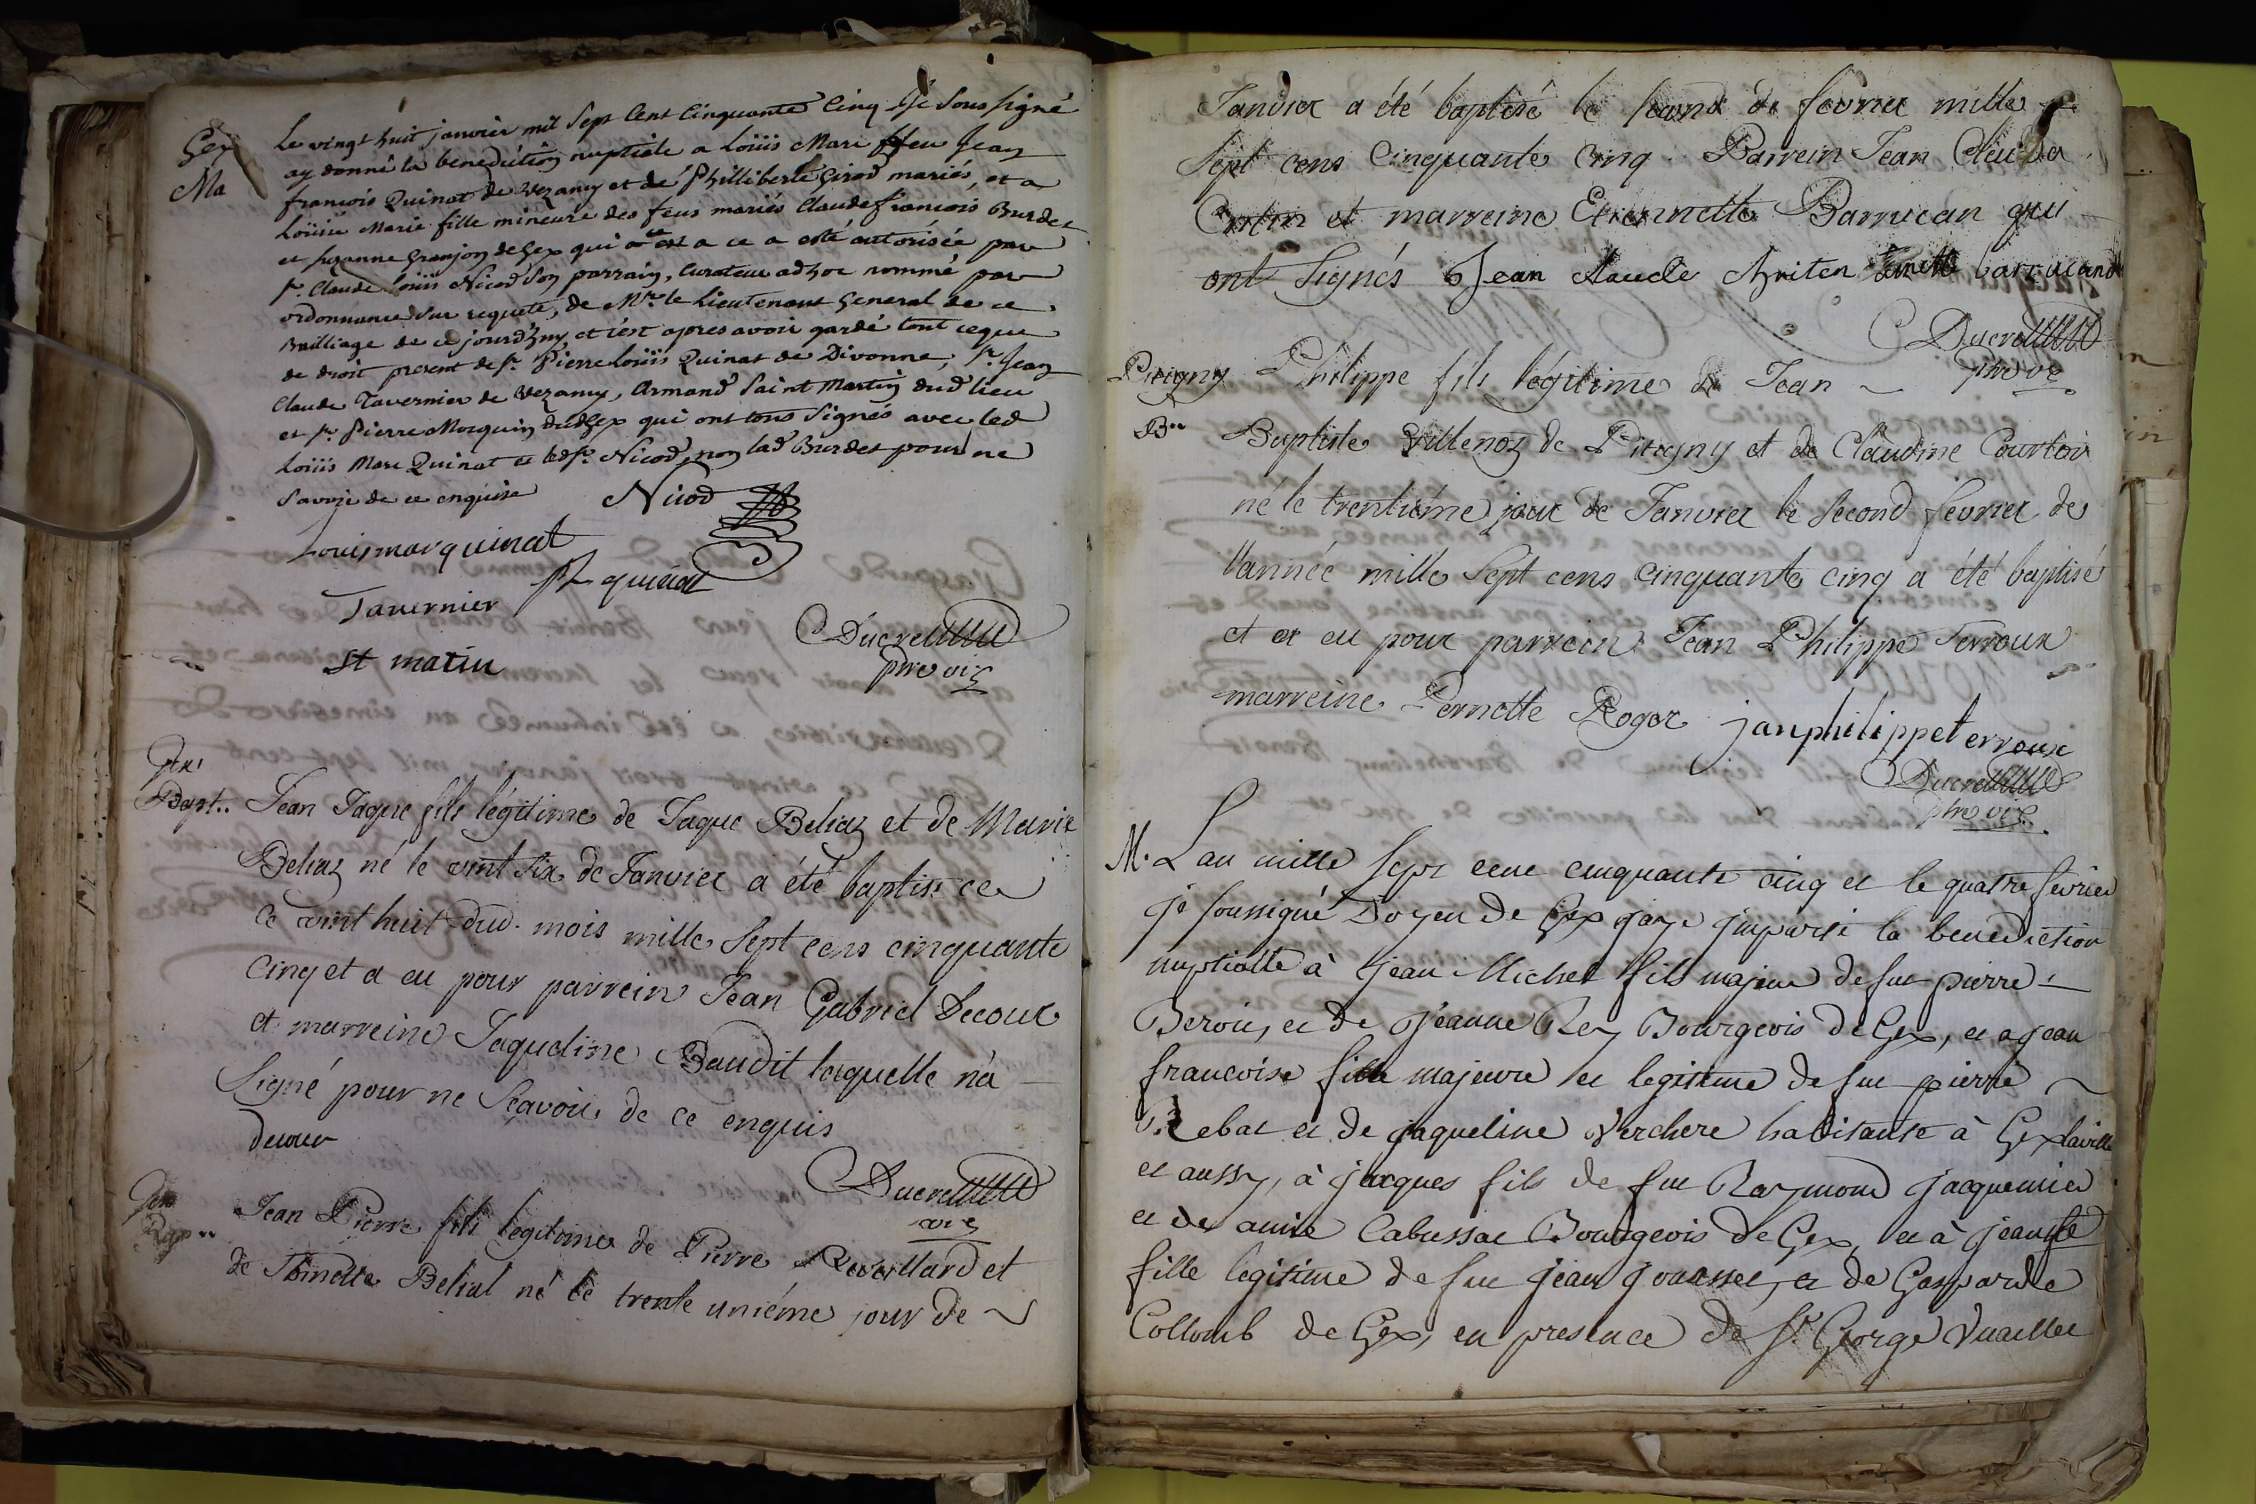 Gex
Ma
Le vingt huit janvier mil Sept Cent Cinquante Cinq Je Sous signé
ay donné la benediction nuptiale a Loüis Marc ffeu Jean
francois Quinat de Vezancy et de Philliberte Girod mariés, et a
Loüise Marie fille mineure des feus mariés Claude francois Burdet
et Suzanne Granjon de Gex qui a ce a esté autorisée par
Sr. Claude Loüis Nicod Son parrain, Curateur adhoc nommé par
ordonnance Sur requete, de Mr. le Lieutenant General de ce
Bailliage de ce jourd'huy, et c'est apres avoir gardé tout ce que
de droit present de Sr. Pierre Loüis Quinat de Divonne, Sr. Jean
Claude Tavernier de Vezancy, Armand Saint Martin dud lieu
et Sr. Pierre Mocquin dud Gex qui ont tous Signés avec led
Loüis Marc Quinat et led Sr. Nicod, non lad Burdet pour ne
Savoir de ce enquise
Nicod
Louis marquinat
quinat
Tavernier
Ducret
ptre vic
st matin
Gex
Bapt..
Jean Jaque fils légitime de Jaque Beliaz et de Marie
Beliaz né le vint Six de Janvier a été baptisé ce
ce vint huit dud. mois mille Sept cens cinquante
cinq et a eu pour parrein Jean Gabriel Decour
et marreine Jaqueline Baudit laquelle n'a
Signé pour ne Sçavoir de ce enquis
decour
Ducret
vic
Gex
Bap..
Jean Pierre fils legitime de Pierre Reveillard et
de Toinette Belial né le trente uniéme jour de
Janvier a été baptisé le second de fevrier mille
Sept cens Cinquante Cinq. Parrein Jean Claude
et marreine Etiennette Barrucan qui
ont Signés Jean Claude barrucand
Ducret
ptre vic
Pitegny
Bt.
Philippe fils légitime de Jean
Baptiste Villenoz de Pitegny et de Claudine Courtoi
né le trentiéme jour de Janvier le Second fevrier de
l'année mille Sept cens Cinquante cinq a été baptisé
et a eu pour parrein Jean Philippe Terroux
marreine Pernette Roger janphilippe terroux
Ducret
ptre vic
M. L'an mille sept cent cinquante cinq et le quatre fevrier
je soussigné Doyen de Gex jay imparti la benediction
nuptialle à jean Michel fils majeur de feu pierre
Berou, et de jeanne Rey Bourgeois de Gex, et a jean
francoise fille majeure et legitime de feu pierre
Rebat et de jaqueline Verchere habitante à Gex laville
et aussy, à jacques fils de feu Raymond jacquemier
et de amie Cabussat Bourgeois de Gex, et à jeanne
fille legitime de feu jean jouasset, et de Gasparde
Collomb de Gex, en presence de Sr. George Vuaillet